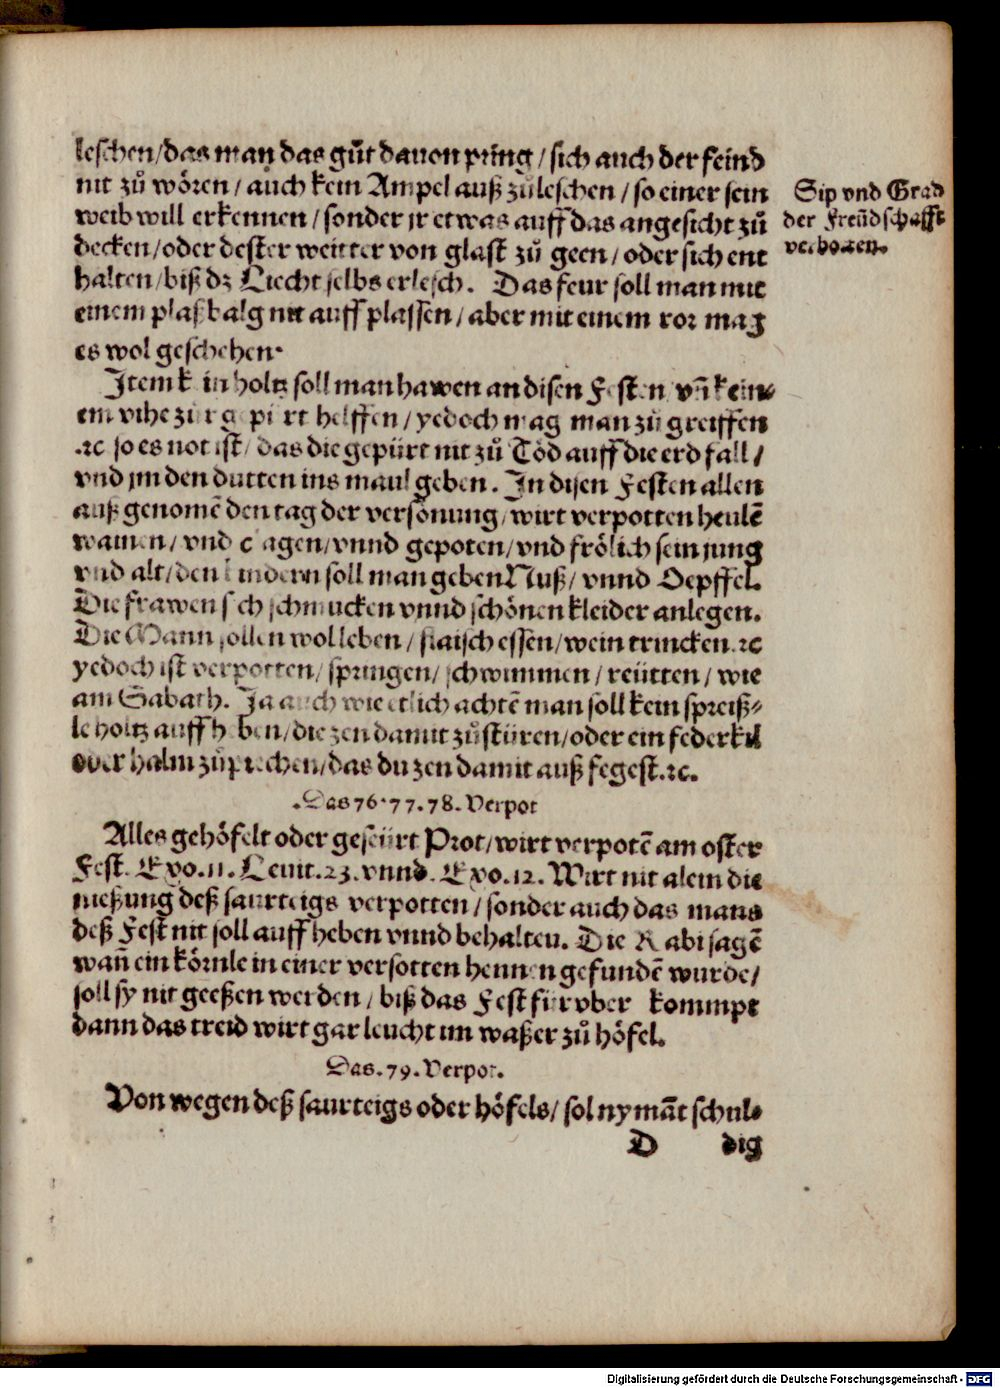 leschen/das man das gůt dauon pring/sich auch der feind
nit zů wören/auch kein Ampel auß zůleschen/so einer sein
weib will erkennen/sonder jr etwas auff das angesicht zů
decken/oder dester weitter von glast zů geen/oder sich ent
halten/biß dz Liecht selbs erlesch. Das feur soll man mit
einem plaßbalg nit auff plassen/aber mit einem ror mag
es wol geschehen.
Sip vnd Grad
der Freüdschafft
verbotten.
Item kein holtz soll man hawen an disen Festen vñ kein-
em vihe zur gepürt helffen/yedoch mag man zů greiffen
.ꝛc so es not ist/das die gepürt nit zů Tod auff die erd fall/
vnd jm den dutten ins maul geben. In disen Festen allen
auß genomē den tag der versönung/wirt verpotten heulē
wainen/vnd clagen/vnnd gepoten/vnd frölich sein jung
vnd alt/den kindern soll man geben Nuß/vnnd Oepffel.
Die frawen sich schmucken vnnd schönen kleider anlegen.
Die Mann sollen wol leben/flaisch essen/wein trincken.ꝛc
yedoch ist verpotten/springen/schwimmen/reütten/wie
am Sabath. Ja auch wie etlich achtē man soll kein spreiß-
le holtz auff heben/die zen damit zů stüren/oder ein federkil
oder halm zůprechen/das du zen damit auß fegest.ꝛc.
.Das 76.77.78.Verpot
Alles gehöfelt oder geseürt Prot/wirt verpotē am oster
Fest. Exo.11.Leuit.23.vnnd.Exo.12.Wirt nit alein die
nießung deß saurteigs verpotten/sonder auch das mans
deß Fest nit soll auff heben vnnd behalten. Die Rabi sagē
wañ ein körnle in einer versotten hennen gefundē wurde/
soll sy nit geeßen werden/biß das Fest für vber kommpt
dann das treid wirt gar leucht im waßer zů höfel.
Das.79.Verpot.
Von wegen deß saurteigs oder höfels/sol nymāt schul-
D dig
Digitalisierung gefördert durch die Deutsche Forschungsgemeinschaft - DFG